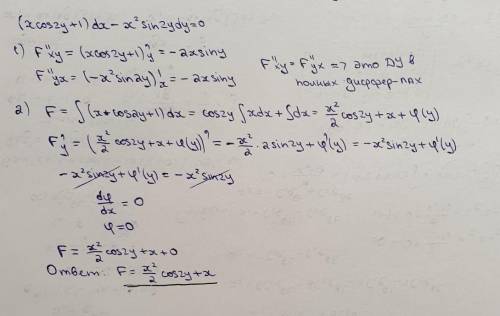 (x cos2y+1)dx - x² sin2y dy=0
1) F''xy = (x cos2y+1)'y = -2x sin y
F''yx = (-x² sin2y)'x = -2x sin y
F''xy = F''yx => это ДУ в
полных диффер-лах
2) F = ∫(x*cos2y+1)dx = cos2y∫xdx+∫dx = x²/2 cos2y+x+φ(y)
F'y = (x²/2 cos2y+x+φ(y))' = -x²/2 · 2sin2y+φ'(y) = -x² sin2y+φ'(y)
-x² sin2y+φ'(y) = -x² sin2y
dφ/dx = 0
φ=0
F = x²/2 cos2y+x+0
Ответ: F = x²/2 cos2y+x